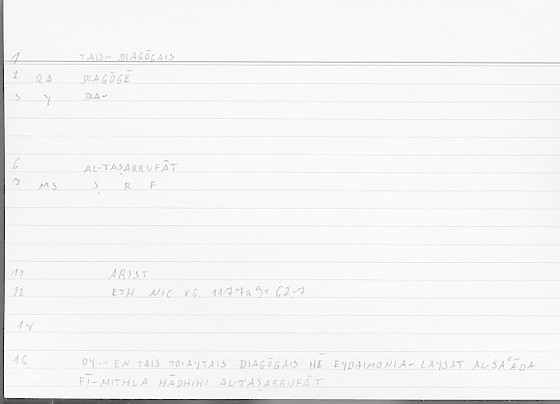 1 TAIS- DIAGŌGAIS
2 QA DIAGŌGĒ
3 Y DIA-
6 AL-TAṢARRUFĀT
9 MS Ṣ R F
11 ARIST
12 ETH NIC X6 1177a9= 62.7
14
16 OY-- EN TAIS TOIAYTAIS DIAGŌGAIS HĒ EYDAIMONIA- LAYSAT AL-SAʿĀDA
FĪ-MITHLA HĀDHIHI AL-TAṢARRUFĀT